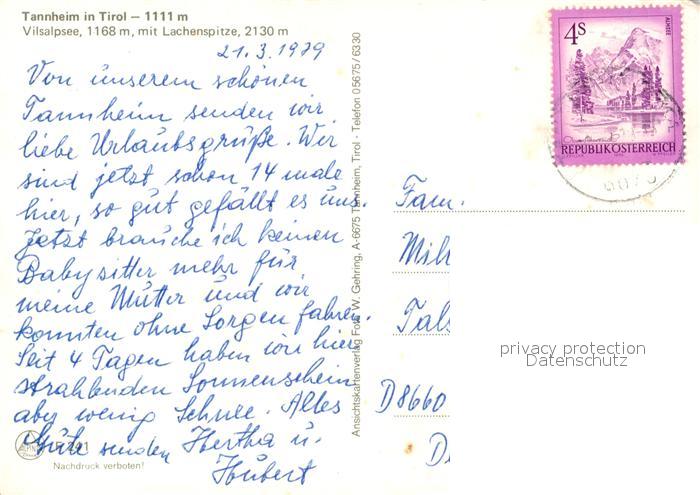 Tannheim in Tirol – 1111 m
Vilsalpsee, 1168 m, mit Lachenspitze, 2130 m
21.3.1979
Von unserem schönen
Tannheim senden wir
liebe Urlaubsgrüße. Wir
sind jetzt schon 14 male
hier, so gut gefällt es uns.
Jetzt brauche ich keinen
Babysitter mehr für
meine Mutter und wir
konnten ohne Sorgen fahren.
Seit 4 Tagen haben wir hier
strahlenden Sonnenschein
aber wenig Schnee. Alles
Gute senden Hertha u.
Hubert
Nachdruck verboten!
Ansichtskartenverlag Foto W. Gehring, A-6675 Tannheim, Tirol · Telefon 05675/6330
4s
ALMSEE
REPUBLIK ÖSTERREICH
Fam.
D8660
privacy protection
Datenschutz